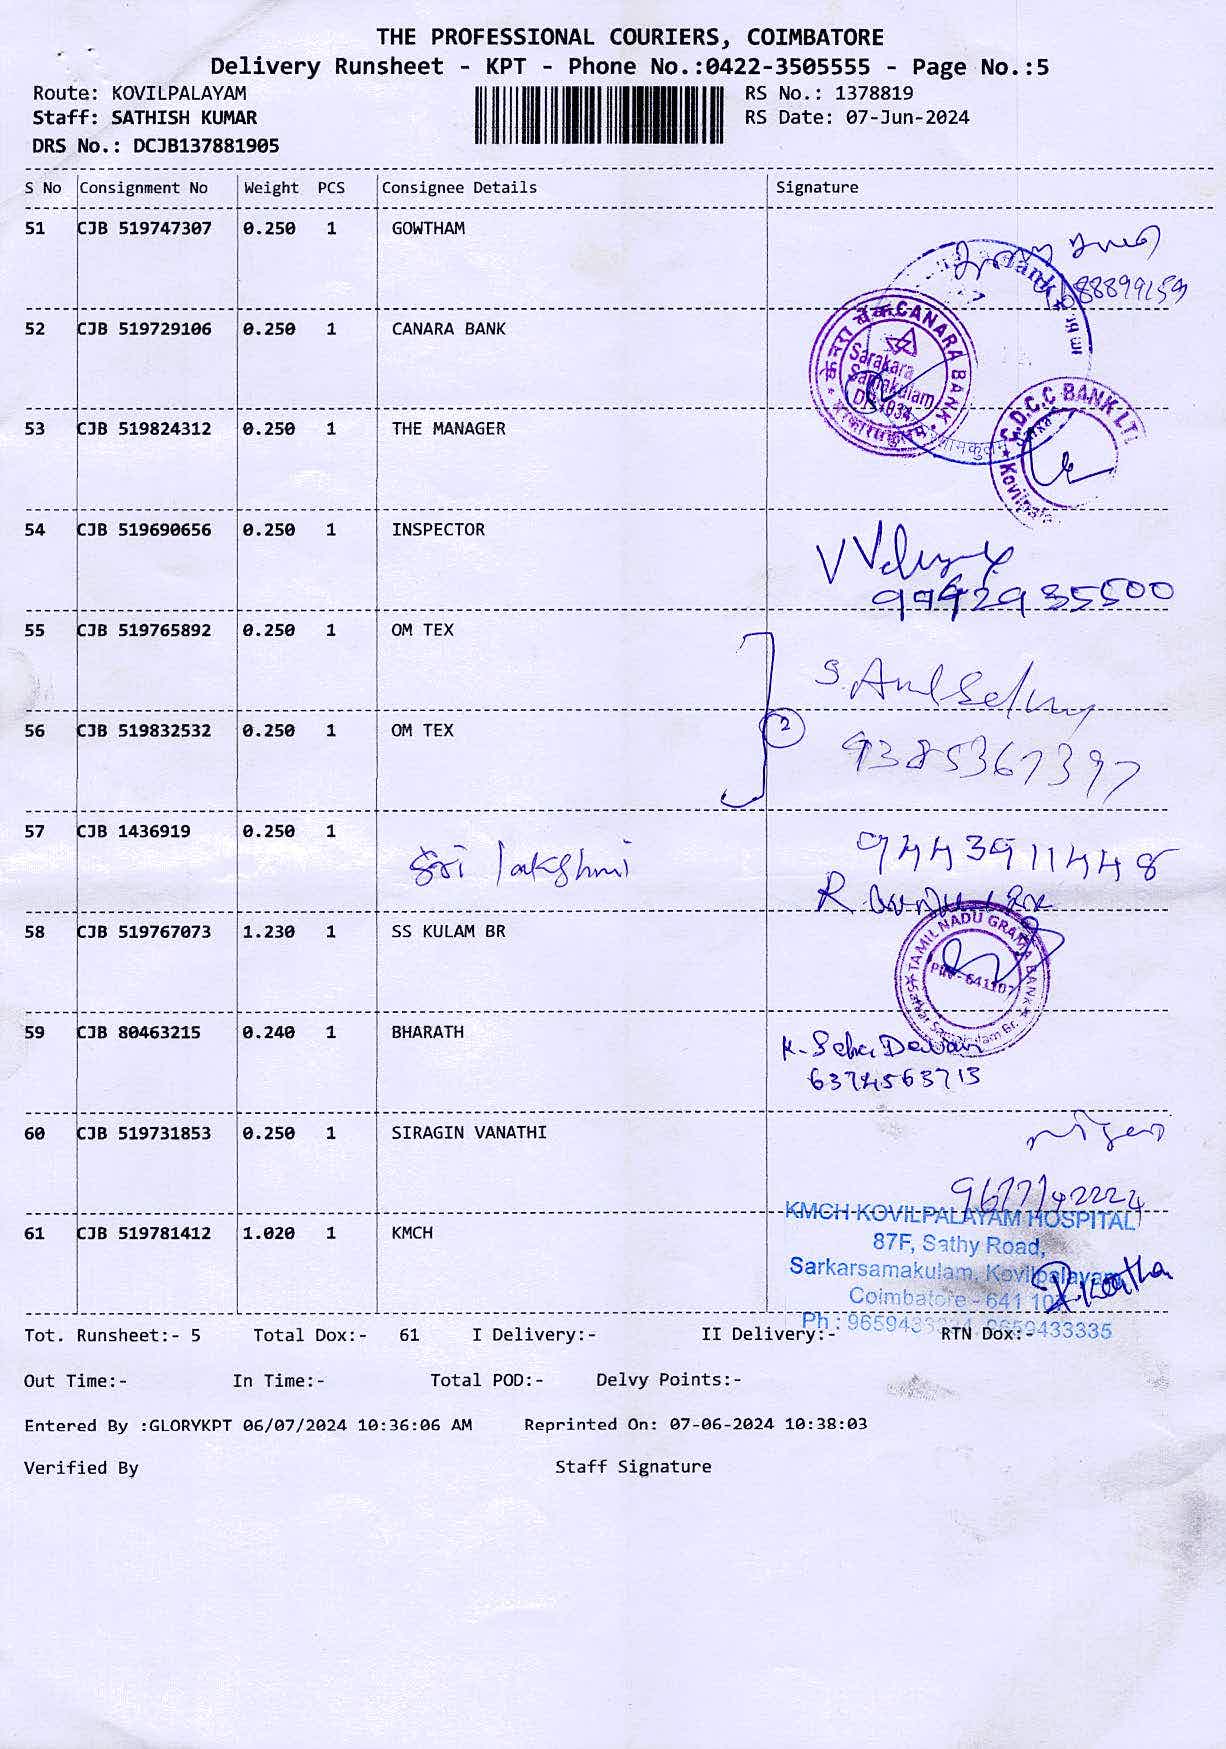 THE PROFESSIONAL COURIERS, COIMBATORE
Delivery Runsheet - KPT - Phone No.:0422-3505555 - Page No.:5
Route: KOVILPALAYAM
Staff: SATHISH KUMAR
DRS No.: DCJB137881905
RS No.: 1378819
RS Date: 07-Jun-2024
S No Consignment No Weight PCS Consignee Details Signature
51 CJB 519747307 0.250 1 GOWTHAM
52 CJB 519729106 0.250 1 CANARA BANK
केनरा बैंक CANARA BANK
Sarakara
Samakulam
53 CJB 519824312 0.250 1 THE MANAGER
C.D.C.C BANK LT
54 CJB 519690656 0.250 1 INSPECTOR
99429 35500
55 CJB 519765892 0.250 1 OM TEX
56 CJB 519832532 0.250 1 OM TEX
2
9385367397
57 CJB 1436919 0.250 1
Sri lakshmi
9443911448
58 CJB 519767073 1.230 1 SS KULAM BR
TAMIL NADU GRAMA BANK
PIN - 641107
59 CJB 80463215 0.240 1 BHARATH
6374563713
60 CJB 519731853 0.250 1 SIRAGIN VANATHI
9677742224
61 CJB 519781412 1.020 1 KMCH
KMCH KOVILPALAYAM HOSPITAL
87F, Sathy Road,
Sarkarsamakulam, Kovilpalayam
Coimbatore - 641 10
Tot. Runsheet:- 5 Total Dox:- 61 I Delivery:- II Delivery:- RTN Dox:-
Out Time:- In Time:- Total POD:- Delvy Points:-
Entered By :GLORYKPT 06/07/2024 10:36:06 AM Reprinted On: 07-06-2024 10:38:03
Verified By Staff Signature